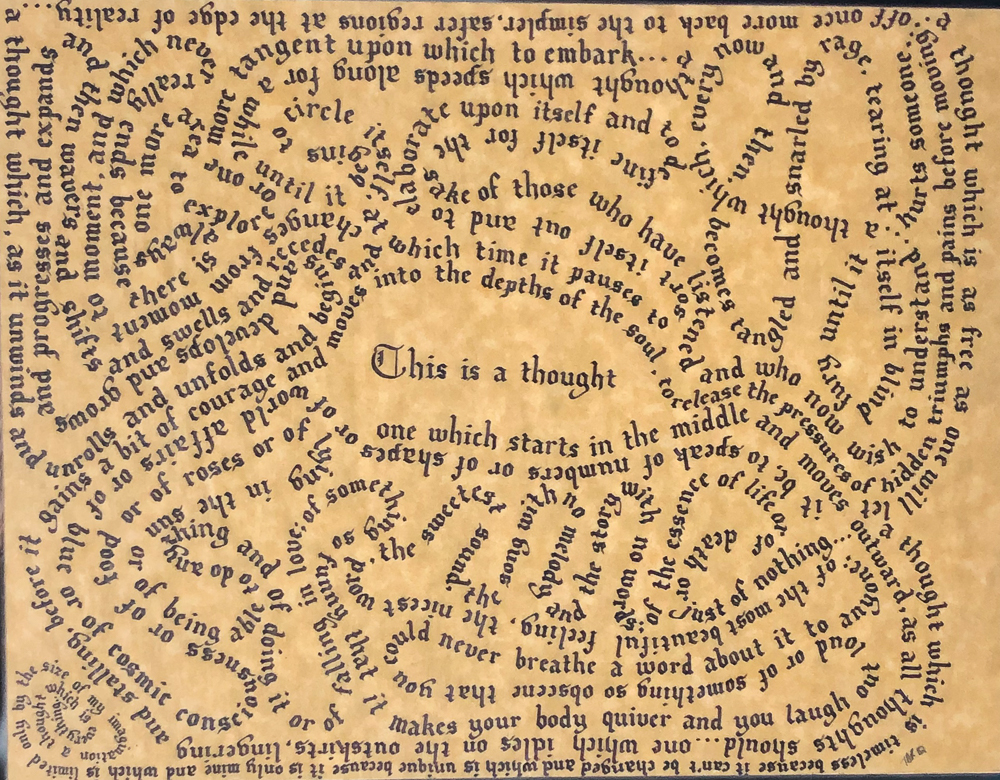 This is a thought
one which starts in the middle and moves outward, as all thoughts
should... one which idles on the outskirts, lingering
and stalling, before it gains a bit of courage and
moves into the depths of the soul, to release the pressures of hidden triumphs and pains and before moving
off once more back to the simpler, safer regions at the edge of reality...
a thought which, as it unwinds and
unrolls and unfolds and begins
and develops and
grows and swells and recedes
and changes
which time it pauses to
sort itself out and to
define itself for the
sake of those who have listened
and who now wish
to understand
and progresses and expands
and then wavers and shifts
from moment to moment, and
which never really ends because
there is always one more
tangent upon which to embark...
thought which speeds along for
a while until it begins
to circle itself, to
elaborate upon itself and to
explore
thought which becomes tangled and gnarled by
rage, tearing at itself in blind
fury until it
hurts someone...
a thought which is as free as one will
let it be, to speak of numbers or of shapes or of
world affairs or of
blue or of roses or of lying
in the sun
or of food or of being able to do anything and of
doing it or of
cosmic consciousness or of
falling in love; of something so
funny that it
makes your body quiver and you laugh
out loud or of something so obscene that you
could never breathe a word about it to anyone; of the most beautiful
word, the sweetest sound, the nicest feeling,
the song with no melody and the
story with no words;
of the essence of life or
of death or of
just of nothing...
a thought which is timeless because it can't be changed and which is unique because it is only mine and which is limited
only by the size of my imagination
a thought which is
everything